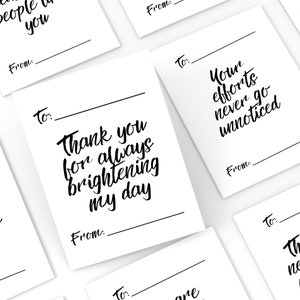 people li
you
From:
To:
Thank you
for always
brightening
my day
From:
To:
Your
efforts
never go
unnoticed
From:
To:
are
To:
To:
Th
ne